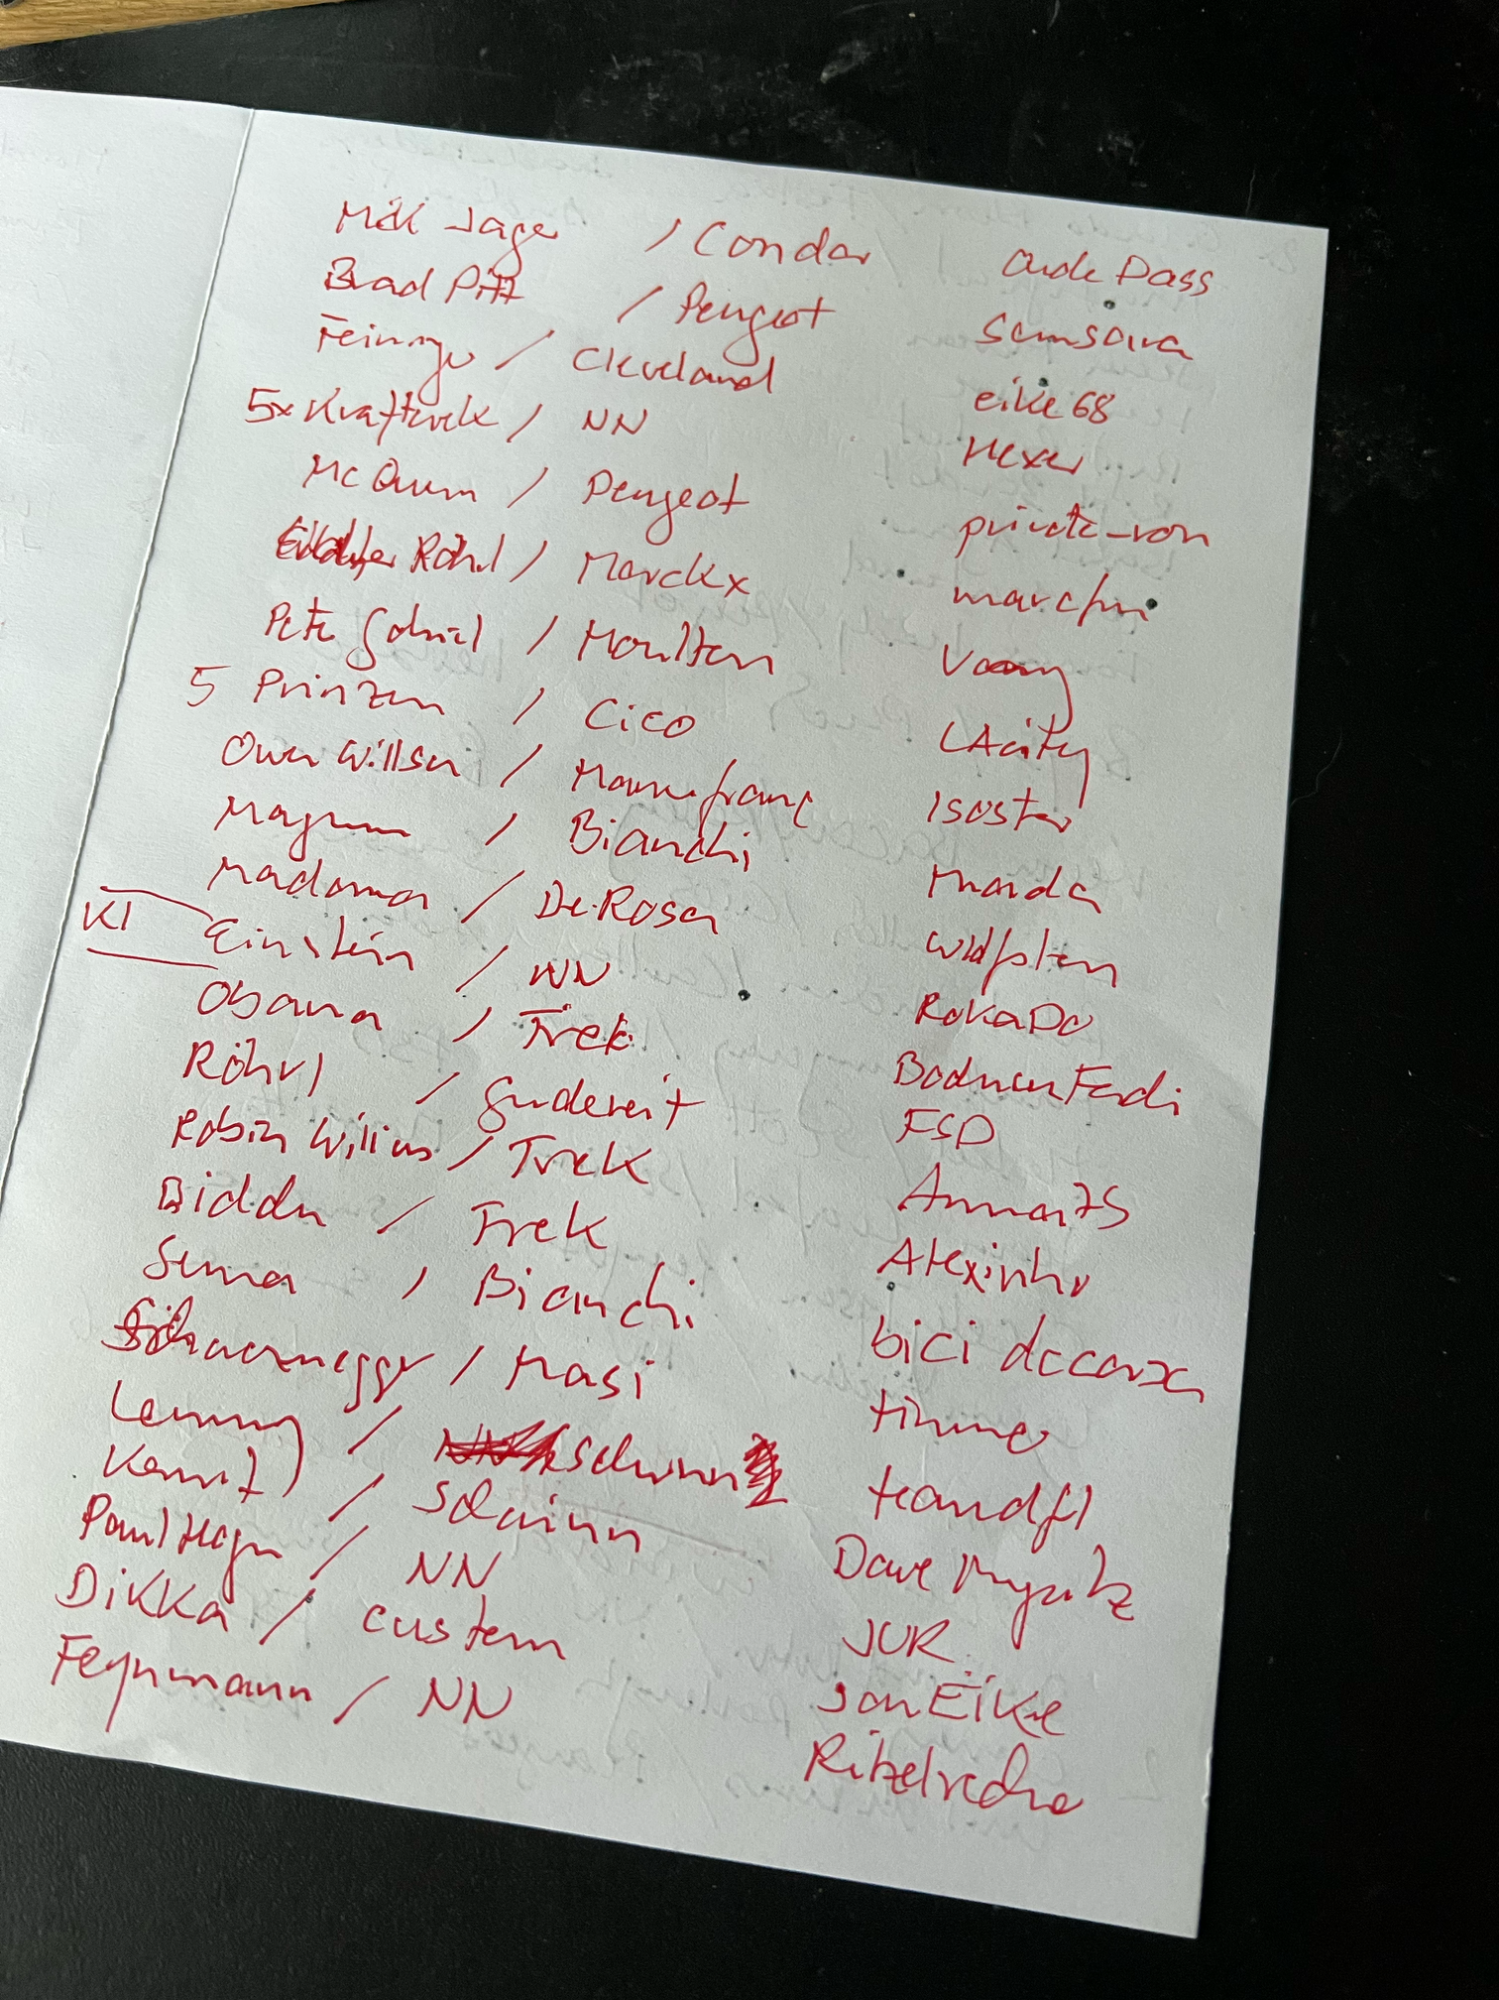 Mick Jager / Condor Oude Pass
Brad Pitt / Peugeot Samsara
Feininger / Cleveland eike 68
5x Kraftwerk / NN Hexer
McQueen / Peugeot private-ron
Röhrl / Merckx
Pete Gabriel / Moulton
5 Prinzen / Cico LAcity
Owen Willson / Isostar
Magnum / Bianchi
Madonna / De Rosa
KI Einstein / NN RokaDo
Obama / Trek Bodmen Ferdi
Röhrl / Gudereit FSD
Robin Willims / Trek Anna7S
Biddn / Trek Alexinho
Senna / Bianchi bici decorsa
Schwarznegger / Masi timme
Lemmy / Schwinn
Kermit / Schwinn Dave
/ NN JUR
Dikka / custom JanEiKe
Feynmann / NN Ritzelreche